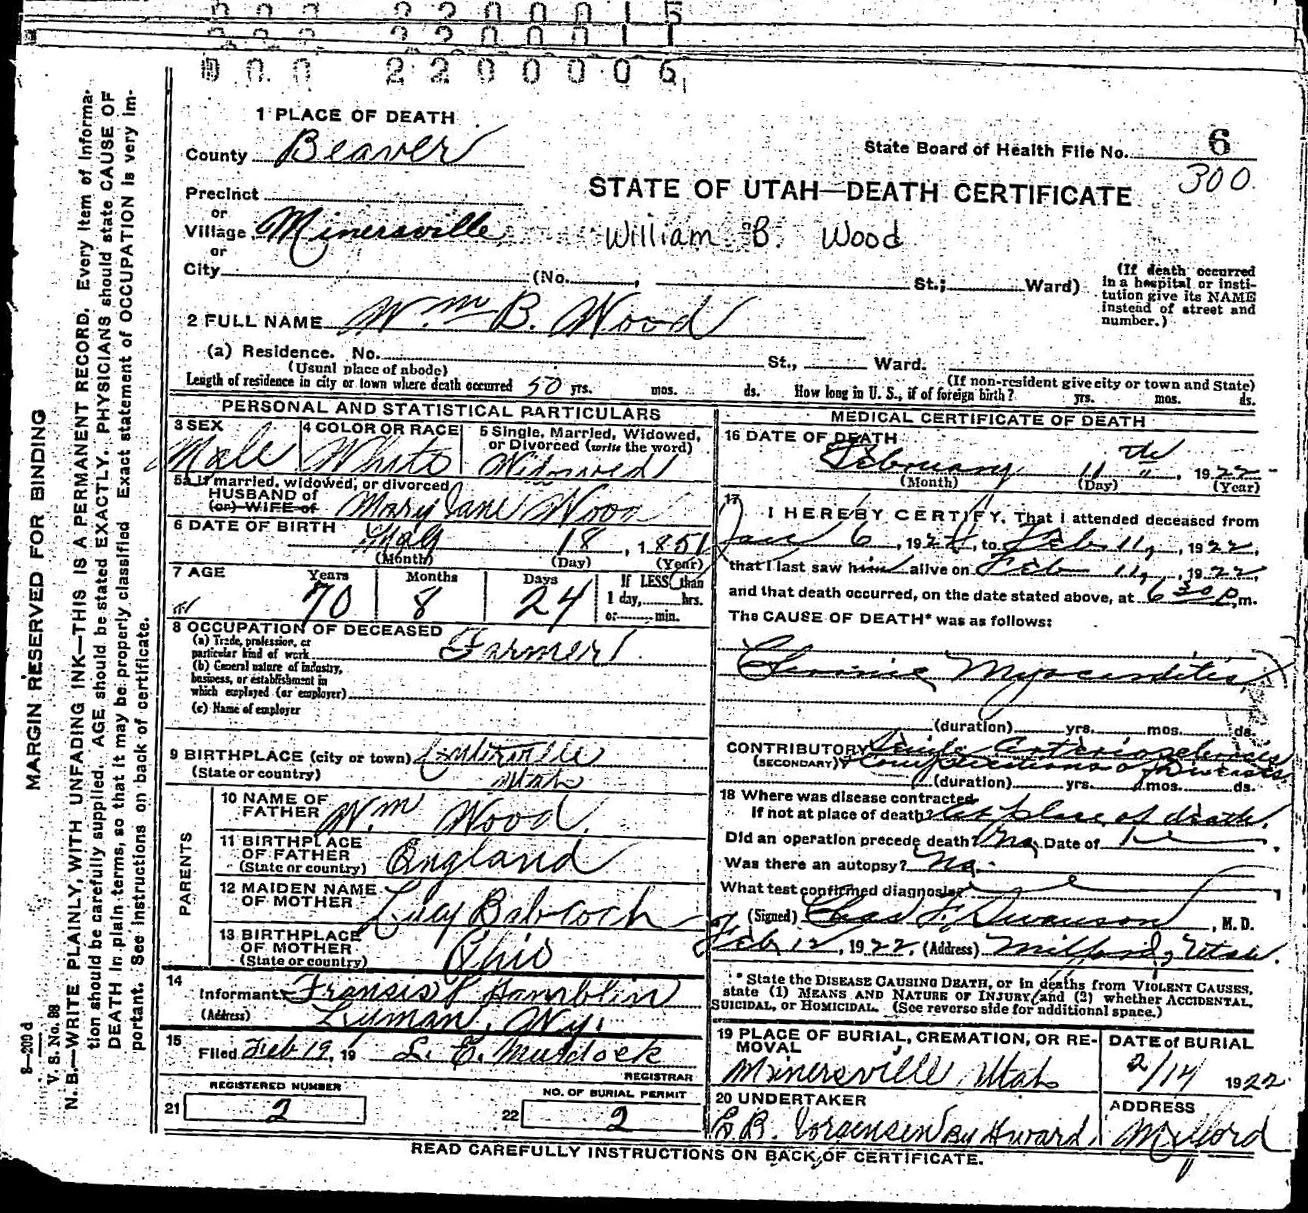 0 0 0 2 2 0 0 0 1 5
0 0 0 2 2 0 0 0 1 1
0 0 0 2 2 0 0 0 0 6
1 PLACE OF DEATH
County Beaver
State Board of Health File No. 6
300
Precinct
or
Village Minersville
or
City (No. , St.; Ward)
STATE OF UTAH—DEATH CERTIFICATE
William B. Wood
(If death occurred in a hospital or insti-
tution give its NAME
instead of street and
number.)
2 FULL NAME Wm B. Wood
(a) Residence. No. St., Ward.
(Usual place of abode) (If non-resident give city or town and State)
Length of residence in city or town where death occurred 50 yrs. mos. ds. How long in U. S., if of foreign birth? yrs. mos. ds.
PERSONAL AND STATISTICAL PARTICULARS
3 SEX 4 COLOR OR RACE 5 Single, Married, Widowed,
or Divorced (write the word)
Male White Widowed
5a If married, widowed, or divorced
HUSBAND of
(or) WIFE of Mary Jane Wood
6 DATE OF BIRTH May 18, 1851
(Month) (Day) (Year)
7 AGE Years Months Days If LESS than
70 8 24 1 day, hrs.
or min.
8 OCCUPATION OF DECEASED
(a) Trade, profession, or
particular kind of work Farmer
(b) General nature of industry,
business, or establishment in
which employed (or employer)
(c) Name of employer
9 BIRTHPLACE (city or town)
(State or country) Utah
PARENTS
10 NAME OF
FATHER Wm Wood
11 BIRTHPLACE
OF FATHER
(State or country) England
12 MAIDEN NAME
OF MOTHER Lucy Babcock
13 BIRTHPLACE
OF MOTHER
(State or country) Ohio
14
Informant Francis P Hamblin
(Address) Lyman, Wy.
15
Filed Feb 19, 19 L. E. Murdock
REGISTRAR
REGISTERED NUMBER
21 2
NO. OF BURIAL PERMIT
22 2
MEDICAL CERTIFICATE OF DEATH
16 DATE OF DEATH
February 11 th, 1922
(Month) (Day) (Year)
17
I HEREBY CERTIFY, That I attended deceased from
Jan 6, 1922, to Feb 11, 1922,
that I last saw him alive on Feb 11, 1922,
and that death occurred, on the date stated above, at 6 30 p.m.
The CAUSE OF DEATH* was as follows:
Chronic Myocarditis
(duration) yrs. mos. ds.
CONTRIBUTORY Senile arteriosclerosis
(SECONDARY) Complications of Diseases
(duration) yrs. mos. ds.
18 Where was disease contracted
If not at place of death? at place of death.
Did an operation precede death? No Date of
Was there an autopsy? No.
What test confirmed diagnosis?
(Signed) Chas F. Swanson, M. D.
Feb 12, 1922. (Address) Milford, Utah.
* State the DISEASE CAUSING DEATH, or in deaths from VIOLENT CAUSES,
state (1) MEANS AND NATURE OF INJURY, and (2) whether ACCIDENTAL,
SUICIDAL, or HOMICIDAL. (See reverse side for additional space.)
19 PLACE OF BURIAL, CREMATION, OR RE-
MOVAL
Minersville Utah
DATE of BURIAL
2/14 1922
20 UNDERTAKER
B. Jorgensen By Huward
ADDRESS
Milford
READ CAREFULLY INSTRUCTIONS ON BACK OF CERTIFICATE.
MARGIN RESERVED FOR BINDING
N. B.—WRITE PLAINLY, WITH UNFADING INK—THIS IS A PERMANENT RECORD. Every item of informa-
tion should be carefully supplied. AGE should be stated EXACTLY. PHYSICIANS should state CAUSE OF
DEATH in plain terms, so that it may be properly classified. Exact statement of OCCUPATION is very im-
portant. See instructions on back of certificate.
V. S. No. B8
8—209 d